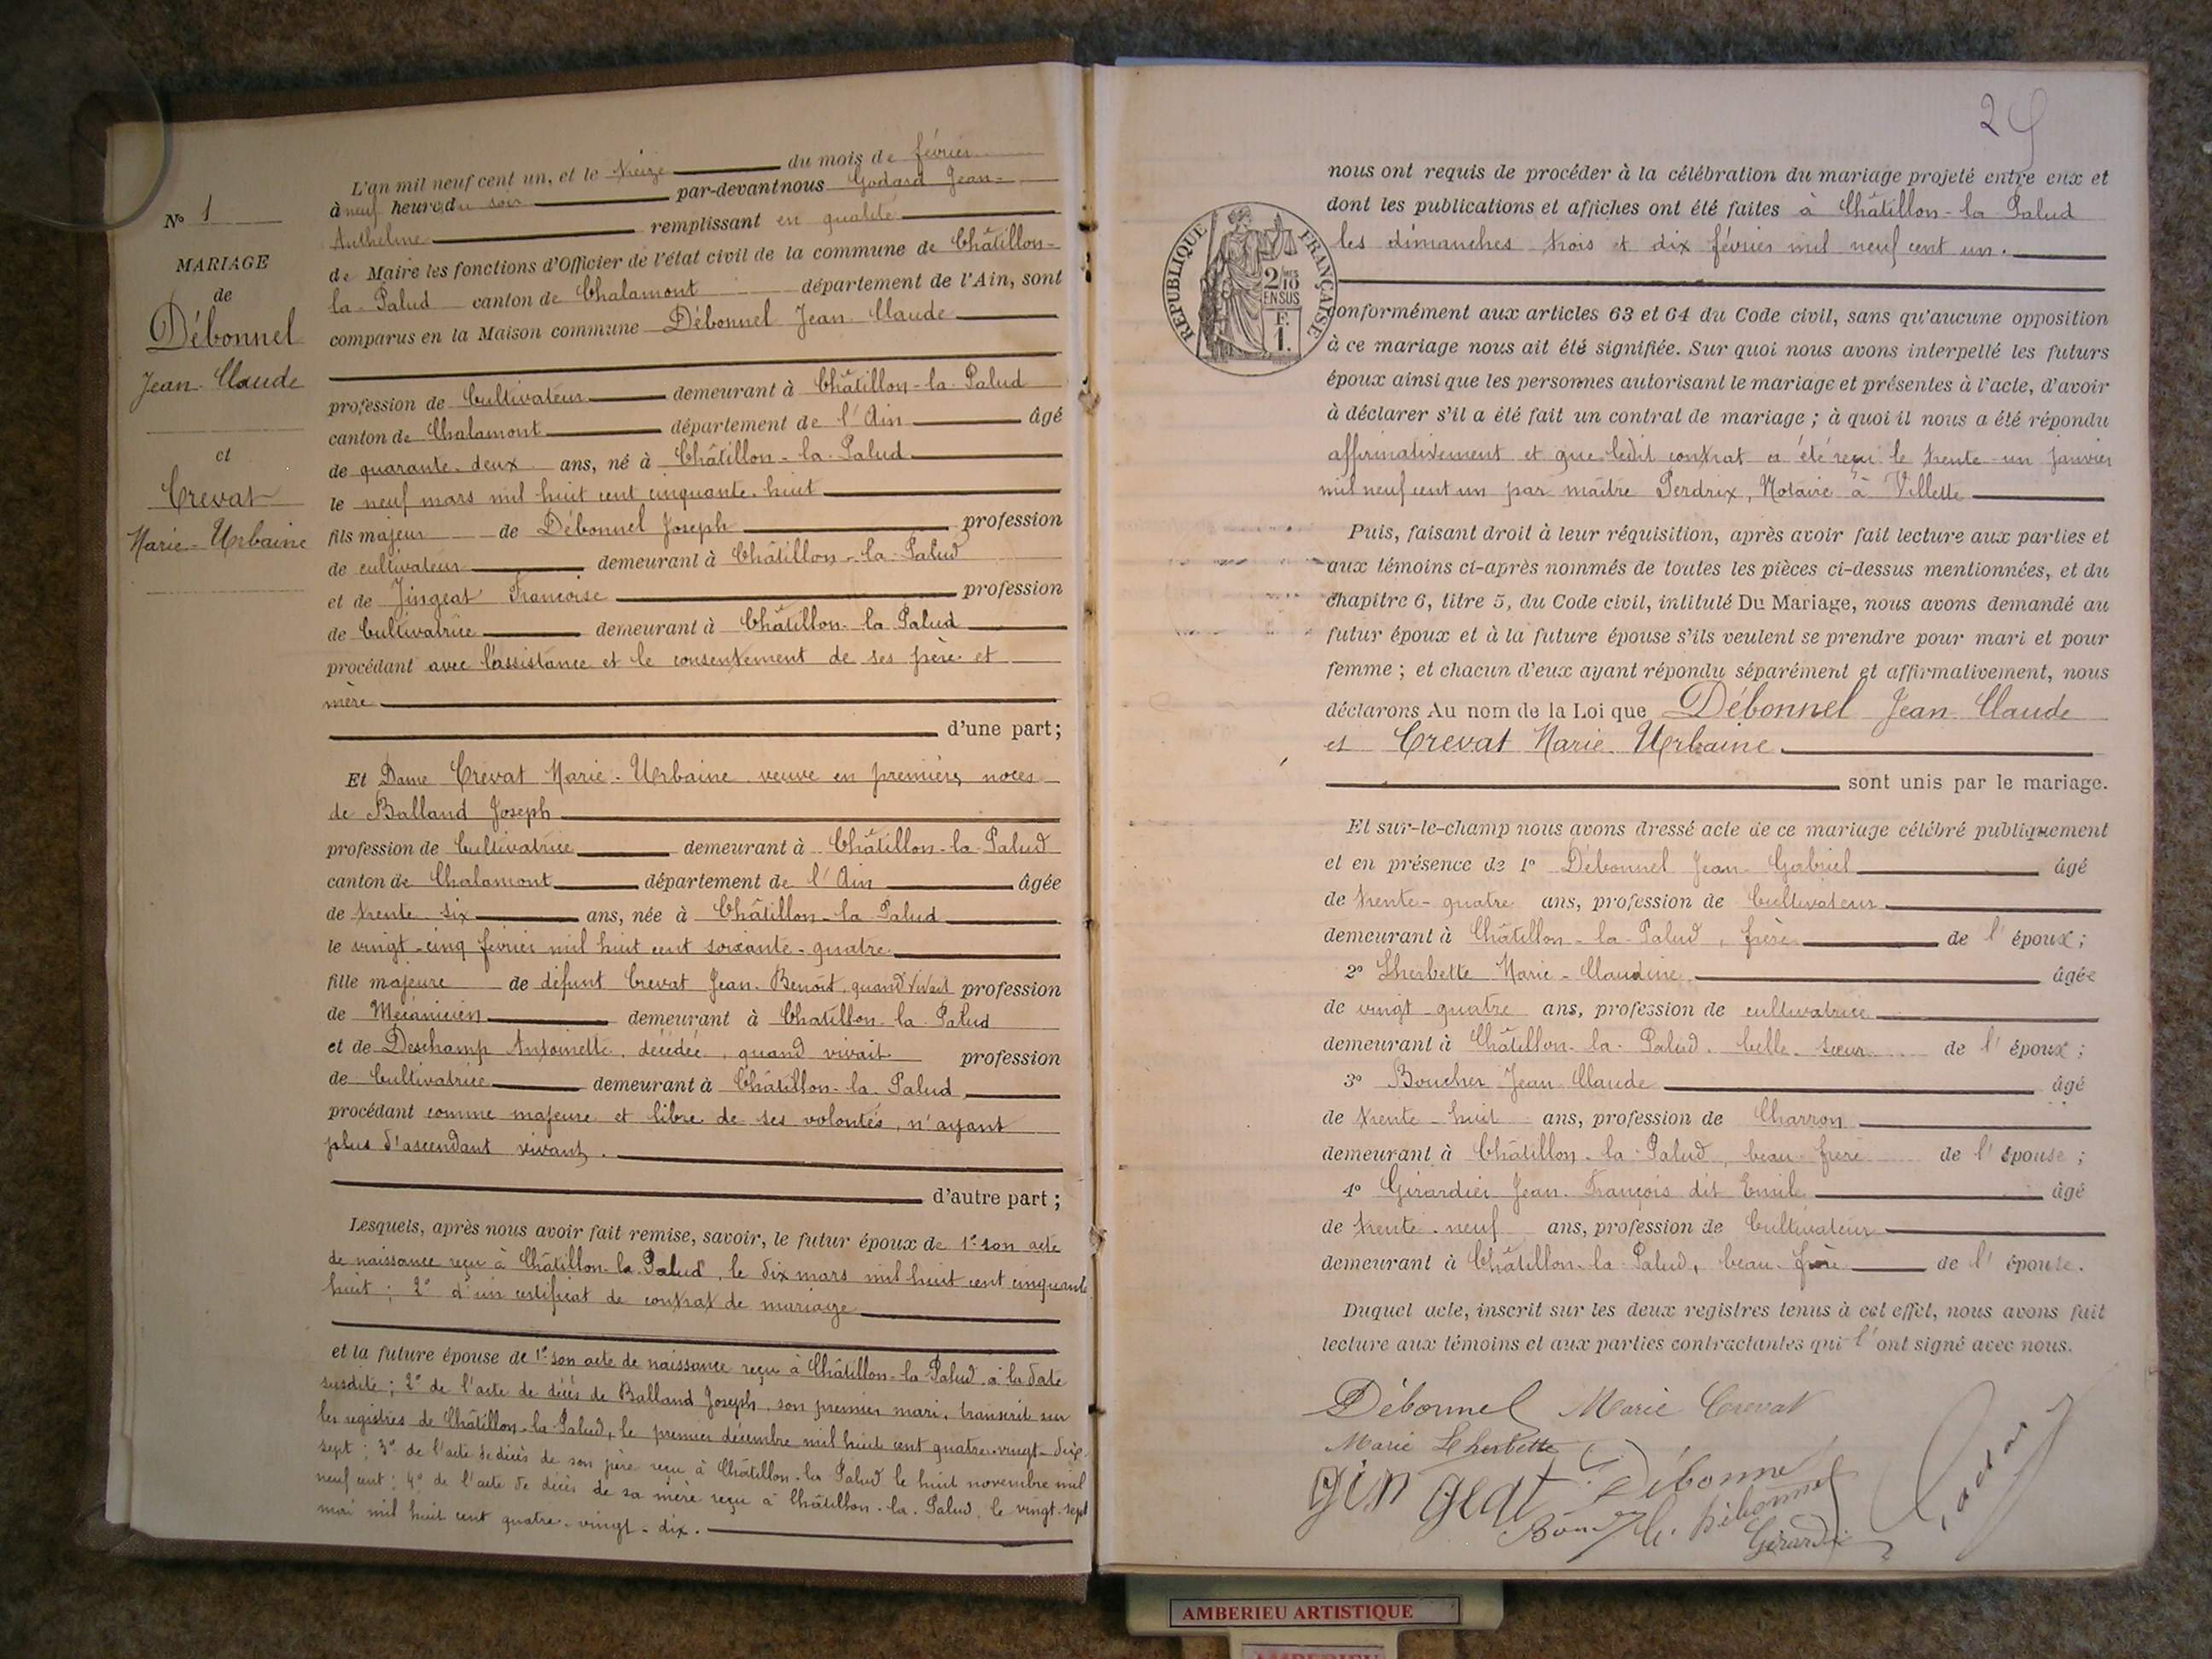 N° 1
MARIAGE
de
Débonnel
Jean-Claude
et
Crevat
Marie-Urbaine
L'an mil neuf cent un, et le treize du mois de février
à neuf heures du soir par-devant nous Godard Jean-
Anthelme remplissant en qualité
de Maire les fonctions d'Officier de l'état civil de la commune de Châtillon-
la-Palud canton de Chalamont département de l'Ain, sont
comparus en la Maison commune Débonnel Jean-Claude
profession de Cultivateur demeurant à Châtillon-la-Palud
canton de Chalamont département de l'Ain âgé
de quarante-deux ans, né à Châtillon-la-Palud
le neuf mars mil huit cent cinquante-huit
fils majeur de Débonnel Joseph profession
de cultivateur demeurant à Châtillon-la-Palud
et de Jingeat Françoise profession
de Cultivatrice demeurant à Châtillon-la-Palud
procédant avec l'assistance et le consentement de ses père et
mère
d'une part;
Et Dame Crevat Marie-Urbaine veuve en premières noces
de Balland Joseph
profession de Cultivatrice demeurant à Châtillon-la-Palud
canton de Chalamont département de l'Ain âgée
de trente-six ans, née à Châtillon-la-Palud
le vingt-cinq février mil huit cent soixante-quatre
fille majeure de défunt Crevat Jean-Benoît, quand vivait profession
de Mécanicien demeurant à Chatillon-la-Palud
et de Deschamp Antoinette, décédée, quand vivait profession
de Cultivatrice demeurant à Châtillon-la-Palud,
procédant comme majeure et libre de ses volontés, n'ayant
plus d'ascendant vivant.
d'autre part;
Lesquels, après nous avoir fait remise, savoir, le futur époux de 1° son acte
de naissance reçu à Châtillon-la-Palud, le dix mars mil huit cent cinquante
huit; 2° d'un certificat de contrat de mariage
et la future épouse de 1° son acte de naissance reçu à Châtillon-la-Palud à la date
susdite; 2° de l'acte de décès de Balland Joseph, son premier mari, transcrit sur
les registres de Châtillon-la-Palud, le premier décembre mil huit cent quatre-vingt-dix-
sept; 3° de l'acte de décès de son père reçu à Châtillon-la-Palud le huit novembre mil
neuf cent; 4° de l'acte de décès de sa mère reçu à Châtillon-la-Palud, le vingt-sept
mai mil huit cent quatre-vingt-dix.
2
RÉPUBLIQUE FRANÇAISE
2/10 MES
EN SUS
F.
1.
nous ont requis de procéder à la célébration du mariage projeté entre eux et
dont les publications et affiches ont été faites à Châtillon-la-Palud
les dimanches trois et dix février mil neuf cent un.
conformément aux articles 63 et 64 du Code civil, sans qu'aucune opposition
à ce mariage nous ait été signifiée. Sur quoi nous avons interpellé les futurs
époux ainsi que les personnes autorisant le mariage et présentes à l'acte, d'avoir
à déclarer s'il a été fait un contrat de mariage; à quoi il nous a été répondu
affirmativement et que ledit contrat a été reçu le trente-un janvier
mil neuf cent un par maître Perdrix, Notaire à Villette
Puis, faisant droit à leur réquisition, après avoir fait lecture aux parties et
aux témoins ci-après nommés de toutes les pièces ci-dessus mentionnées, et du
chapitre 6, titre 5, du Code civil, intitulé Du Mariage, nous avons demandé au
futur époux et à la future épouse s'ils veulent se prendre pour mari et pour
femme; et chacun d'eux ayant répondu séparément et affirmativement, nous
déclarons Au nom de la Loi que Débonnel Jean-Claude
et Crevat Marie-Urbaine
sont unis par le mariage.
Et sur-le-champ nous avons dressé acte de ce mariage célébré publiquement
et en présence de 1° Débonnel Jean-Gabriel âgé
de trente-quatre ans, profession de Cultivateur
demeurant à Châtillon-la-Palud, frère de l'époux;
2° Lherbette Marie-Claudine âgée
de vingt-quatre ans, profession de cultivatrice
demeurant à Châtillon-la-Palud, belle-sœur de l'époux;
3° Boucher Jean Claude âgé
de trente-huit ans, profession de Charron
demeurant à Châtillon-la-Palud, beau-frère de l'épouse;
4° Girardier Jean-François dit Emile âgé
de trente-neuf ans, profession de Cultivateur
demeurant à Châtillon-la-Palud, beau-frère de l'épouse.
Duquel acte, inscrit sur les deux registres tenus à cet effet, nous avons fait
lecture aux témoins et aux parties contractantes qui l'ont signé avec nous.
Débonnel Marie Crevat
Marie Lherbette
gin geat Débonnel
Débonnel
Girardie
AMBERIEU ARTISTIQUE
AMBERIEU